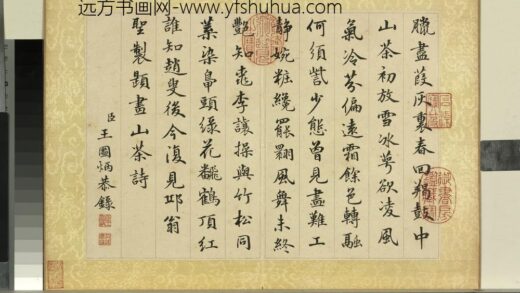 远方书画网 www.yfshuhua.com
臘盡葭灰裏春回羯鼓中
山茶初放雪冰萼欲凌風
氣冷芬偏遠霜餘色轉融
何須訾少態曾見畫難工
静婉粧纔罷翾風舞未終
艷知桃李讓操與竹松同
染鳧頭緑花鶴頂紅
誰知趙叟後今復見邛翁
聖製題畫山茶詩
臣王圖炳恭錄